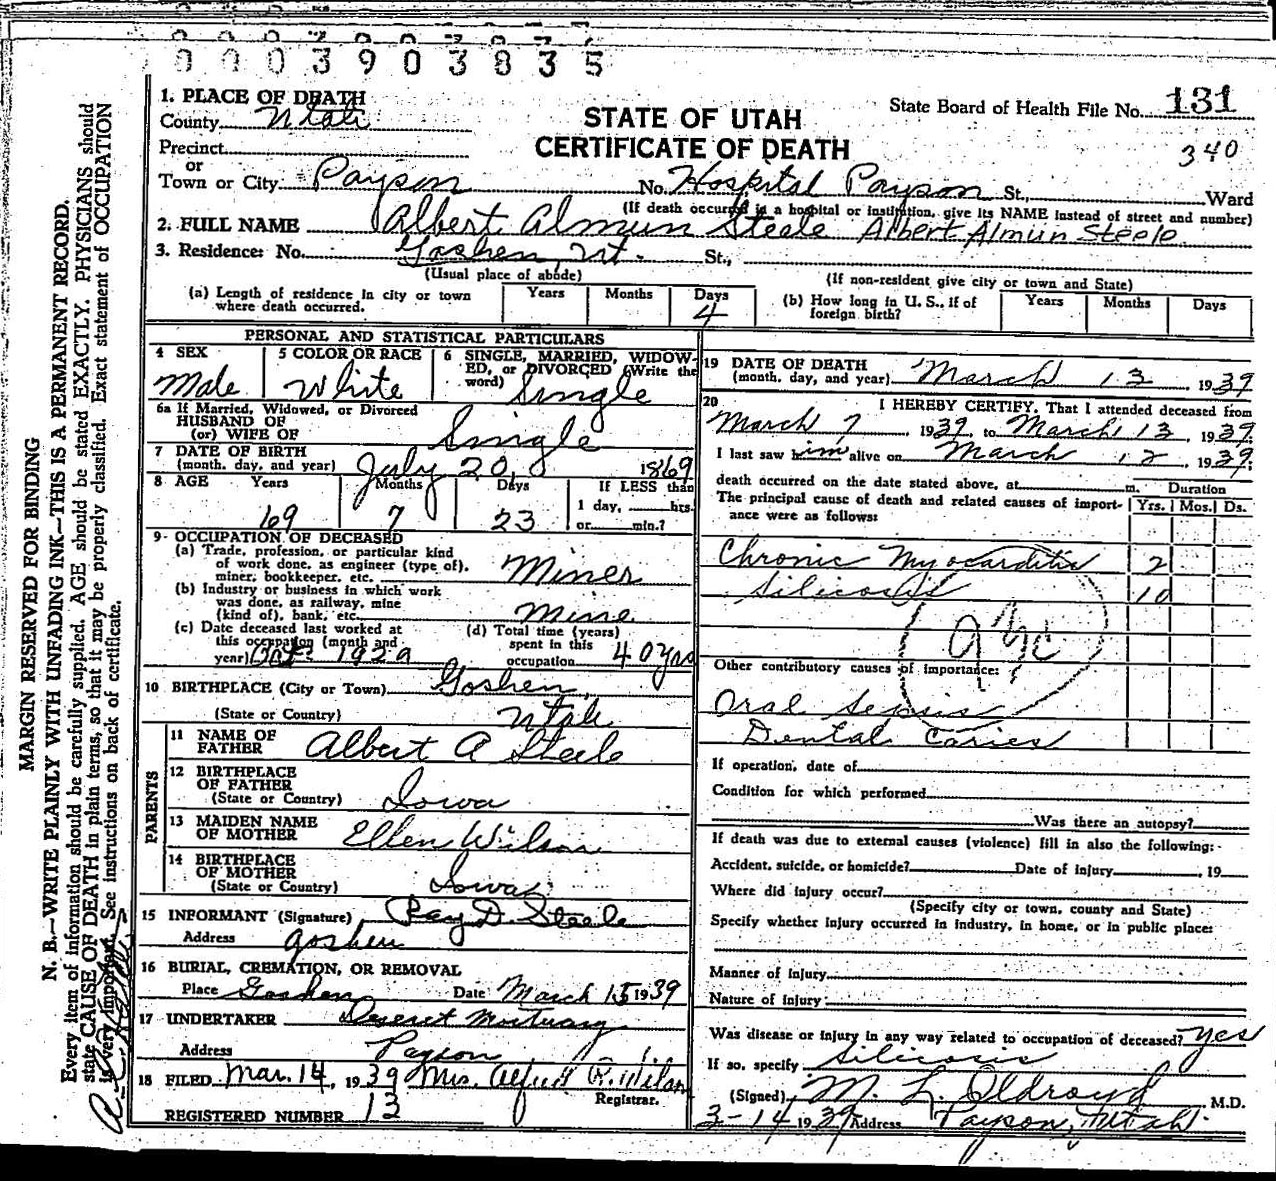 0003903835
1. PLACE OF DEATH
County Utah
STATE OF UTAH
CERTIFICATE OF DEATH
State Board of Health File No. 131
340
Precinct
or
Town or City Payson No. Hospital Payson St., Ward
(If death occurred in a hospital or institution, give its NAME instead of street and number)
2. FULL NAME Albert Almun Steele Albert Almun Steele
3. Residence: No. Goshen, Ut. St.,
(Usual place of abode) (If non-resident give city or town and State)
(a) Length of residence in city or town where death occurred. Years Months Days 4
(b) How long in U. S., if of foreign birth? Years Months Days
PERSONAL AND STATISTICAL PARTICULARS
4 SEX Male
5 COLOR OR RACE White
6 SINGLE, MARRIED, WIDOW-
ED, or DIVORCED (Write the
word) Single
6a If Married, Widowed, or Divorced
HUSBAND OF
(or) WIFE OF Single
7 DATE OF BIRTH
(month, day, and year) July 20, 1869
8 AGE Years Months Days If LESS than
69 7 23 1 day, hrs.
or min.?
9- OCCUPATION OF DECEASED
(a) Trade, profession, or particular kind
of work done, as engineer (type of),
miner, bookkeeper, etc. Miner
(b) Industry or business in which work
was done, as railway, mine
(kind of), bank, etc. Mine
(c) Date deceased last worked at
this occupation (month and
year) Oct: 1929
(d) Total time (years)
spent in this
occupation 40 yrs
10 BIRTHPLACE (City or Town) Goshen,
(State or Country) Utah
PARENTS
11 NAME OF
FATHER Albert A Steele
12 BIRTHPLACE
OF FATHER
(State or Country) Iowa
13 MAIDEN NAME
OF MOTHER Ellen Wilson
14 BIRTHPLACE
OF MOTHER
(State or Country) Iowa
15 INFORMANT (Signature) Ray D. Steele
Address Goshen
16 BURIAL, CREMATION, OR REMOVAL
Place Goshen Date March 15 1939
17 UNDERTAKER Deseret Mortuary
Address Payson
18 FILED Mar. 14, 1939 Mrs. Alfred R. Wilson
Registrar.
REGISTERED NUMBER 13
19 DATE OF DEATH
(month, day, and year) March 13, 1939
20 I HEREBY CERTIFY, That I attended deceased from
March 7 1939 to March 13, 1939.
I last saw him alive on March 12, 1939;
death occurred on the date stated above, at m. Duration
The principal cause of death and related causes of import- Yrs. Mos. Ds.
ance were as follows:
Chronic Myocarditis 2
Silicosis 10
Other contributory causes of importance:
Oral Sepsis
Dental Caries
If operation, date of
Condition for which performed
Was there an autopsy?
If death was due to external causes (violence) fill in also the following:-
Accident, suicide, or homicide? Date of injury , 19
Where did injury occur?
(Specify city or town, county and State)
Specify whether injury occurred in industry, in home, or in public place:
Manner of injury
Nature of injury
Was disease or injury in any way related to occupation of deceased? yes
If so, specify Silicosis
(Signed) M. L. Oldroyd M.D.
3-14 1939 Address Payson, Utah.
MARGIN RESERVED FOR BINDING
N. B.—WRITE PLAINLY WITH UNFADING INK—THIS IS A PERMANENT RECORD.
Every item of information should be carefully supplied. AGE should be stated EXACTLY. PHYSICIANS should
state CAUSE OF DEATH in plain terms, so that it may be properly classified. Exact statement of OCCUPATION
is very important. See instructions on back of certificate.